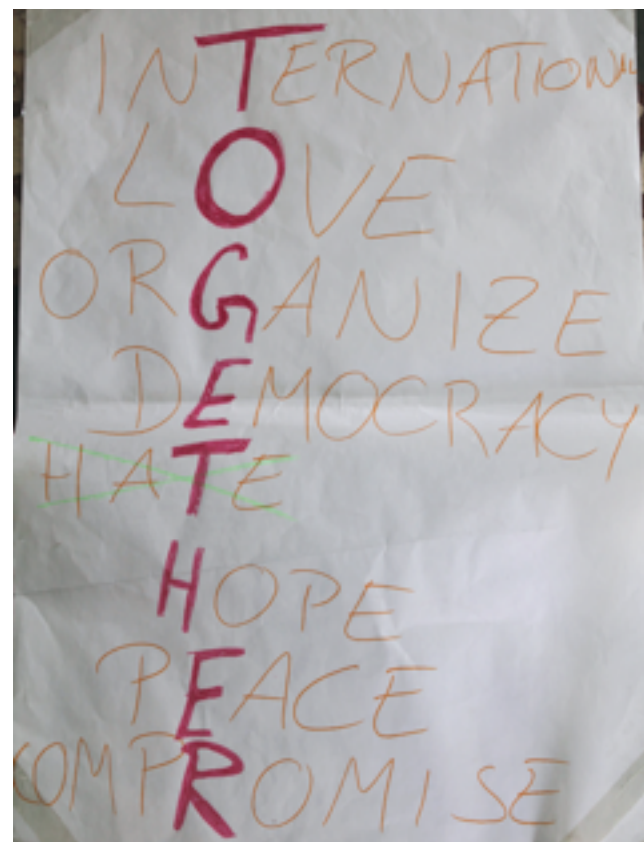 INTERNATIONAL
LOVE
ORGANIZE
DEMOCRACY
HATE
HOPE
PEACE
COMPROMISE